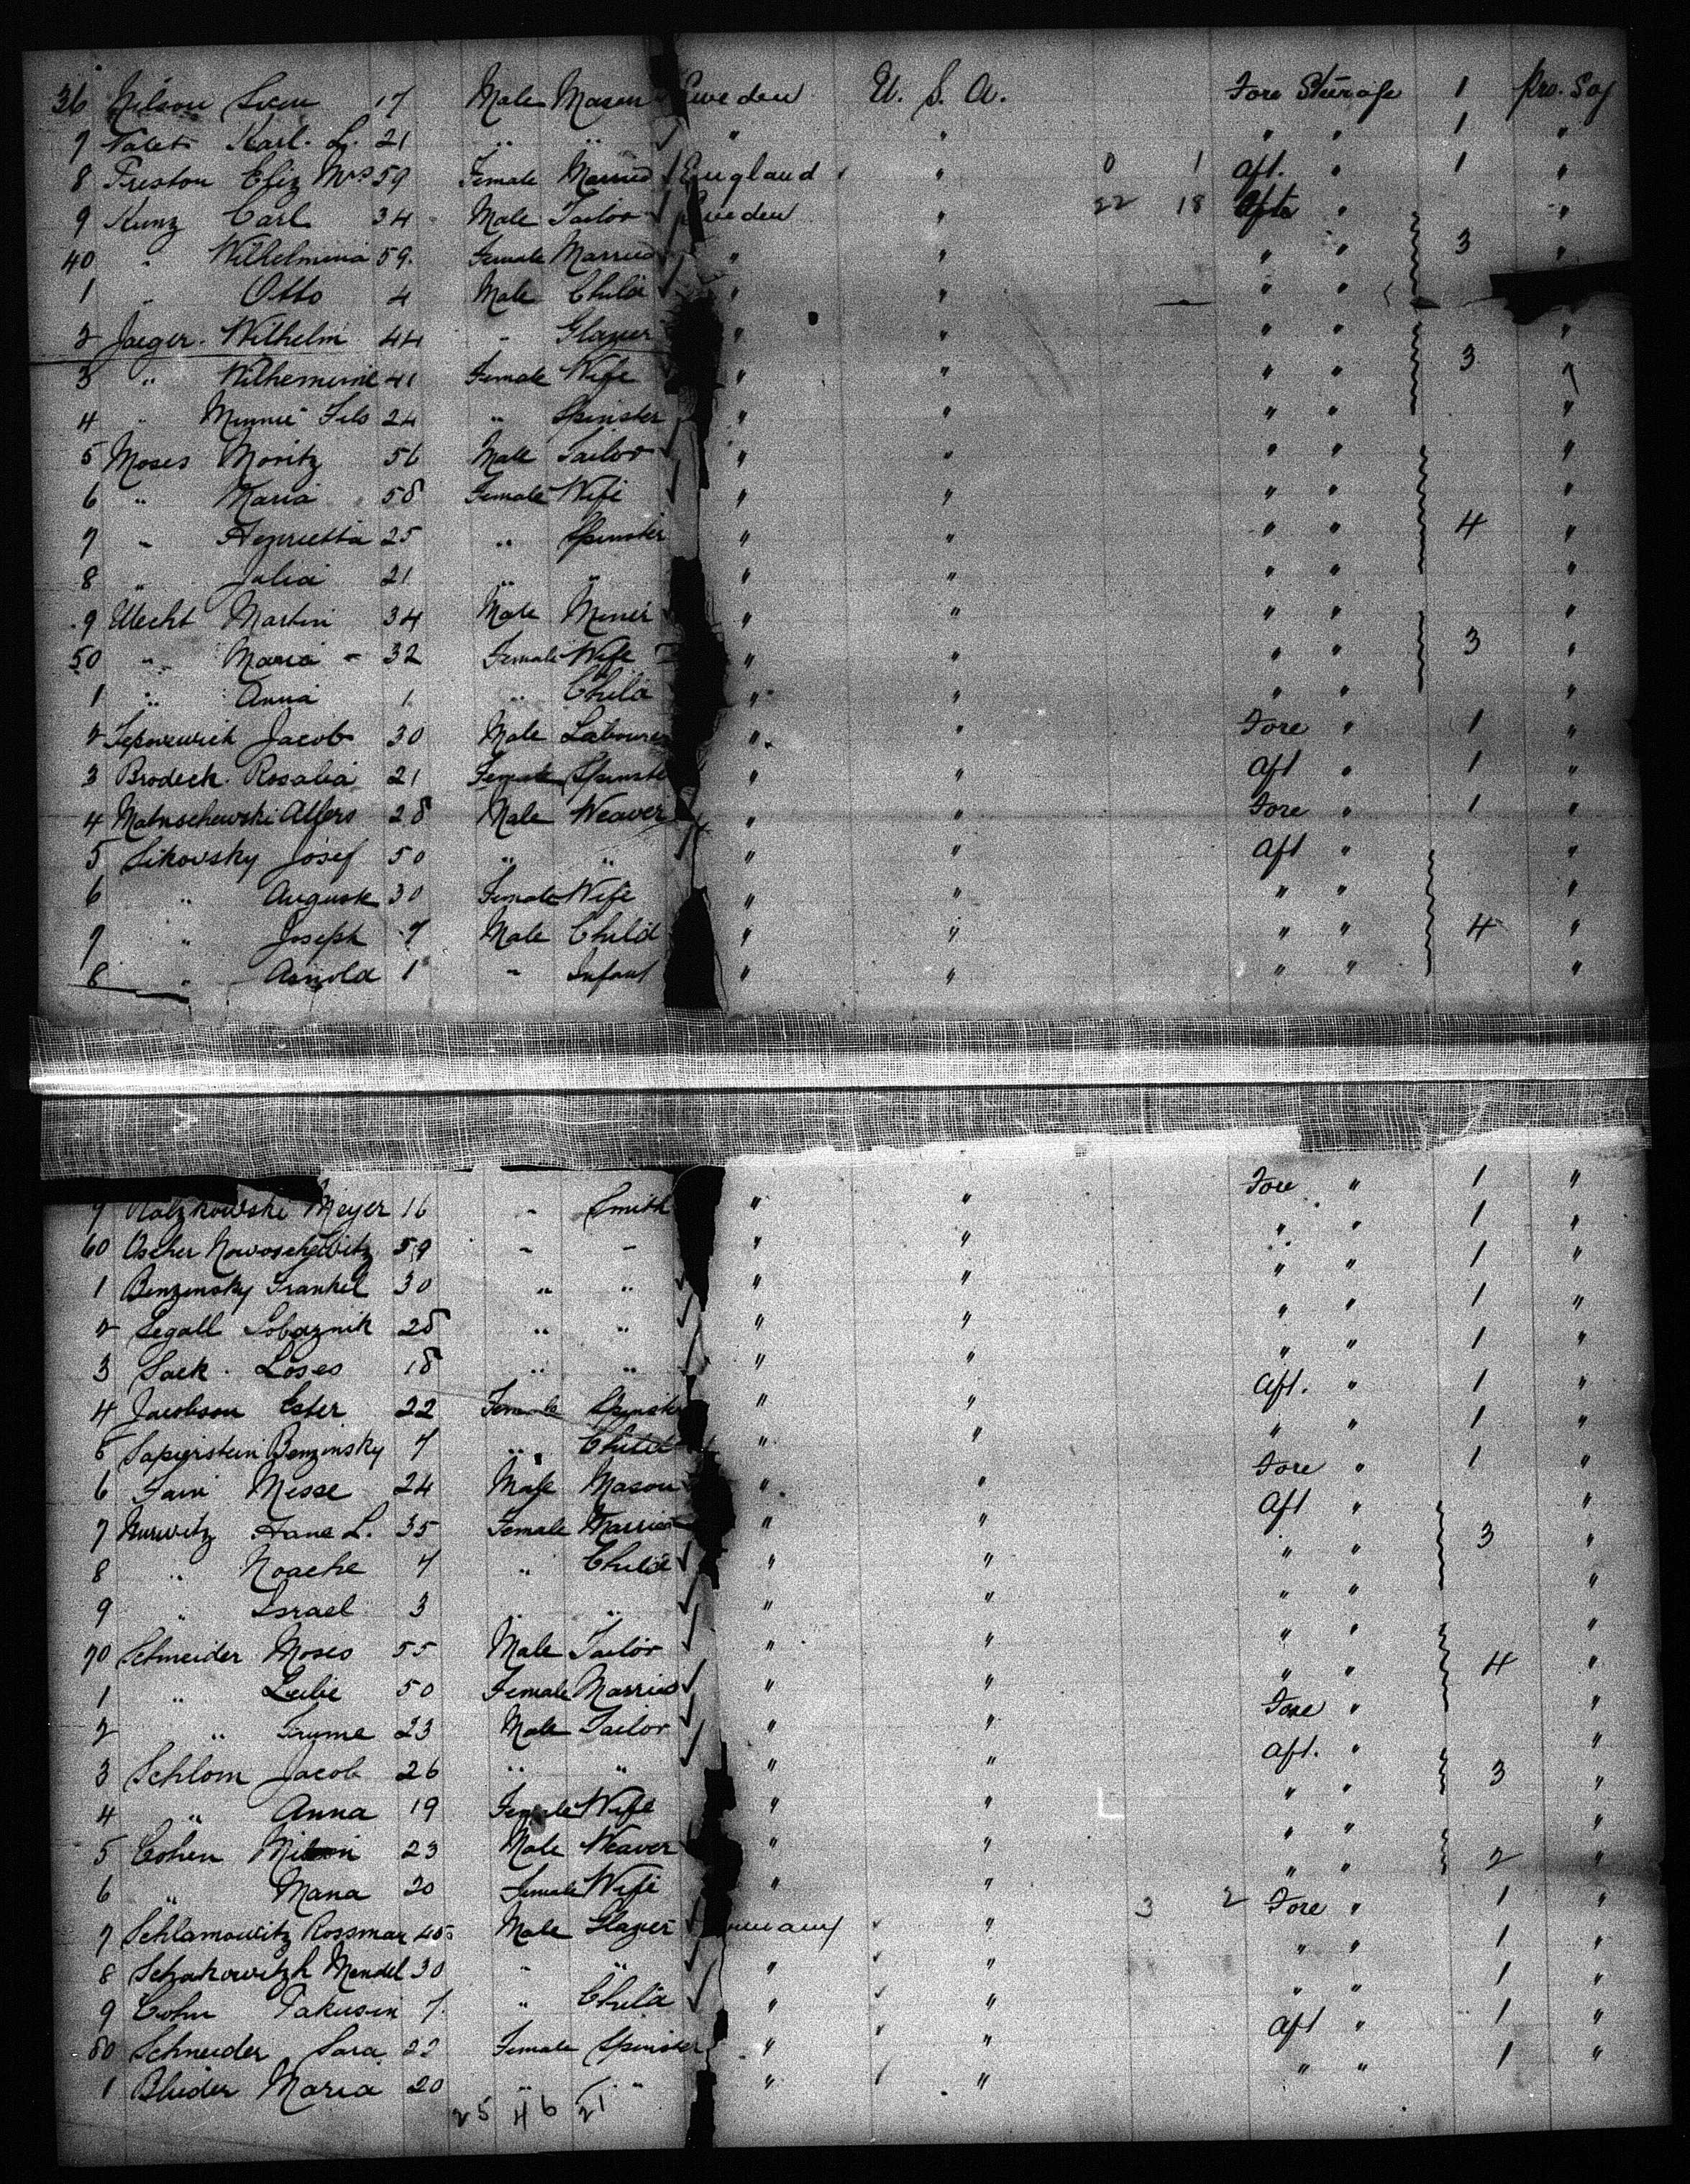 36 Nilson Sven 17 Male Mason Sweden U. S. A. Fore Steerage 1 Pro. Soj
7 Karl. L. 21 " " " " " " 1 "
8 Preston Eliz Mrs 59 Female Married England " 0 1 Aft. " 1 "
9 Kunz Carl 34 Male Tailor Sweden " 22 18 Aft " "
40 " Wilhelmina 59 Female Married " " " " 3 "
1 " Otto 4 Male Child " " " "
2 Jaeger. Wilhelm 44 " Glazier " " " " "
3 " Wilhemine 41 Female Wife " " " " 3 "
4 " Minnie Fils 24 " Spinster " " " " "
5 Moses Moritz 56 Male Tailor " " " " "
6 " Maria 58 Female Wife " " " " "
7 " Henrietta 25 " Spinster " " " " 4 "
8 " Julia 21 " " " " " " "
9 Utecht Martin 34 Male Miner " " " " "
50 " Maria 32 Female Wife " " " " 3 "
1 " Anna 1 " Child " " " " "
2 Jacob 30 Male Labourer " " Fore " 1 "
3 Brodeck. Rosalia 21 Female Spinster " " Aft " 1 "
4 Matuschewski Alfers 28 Male Weaver " " Fore " 1 "
5 Sikovsky Josef 50 " " " " Aft " "
6 " Auguste 30 Female Wife " " " " "
7 " Joseph 7 Male Child " " " " 4 "
8 " Arnold 1 " Infant " " " " "
9 Meyer 16 " Smith " " Fore " 1 "
60 Ascher Nowoschelvitz 59 " " " " " " 1 "
1 Benzinsky Frankel 30 " " " " " " 1 "
2 Segall 28 " " " " " " 1 "
3 Sack. Loses 18 " " " " " " 1 "
4 Jacobson Ester 22 Female Spinster " " Aft. " 1 "
5 Sapierstein Benzinsky 7 " Child " " " " 1 "
6 Fain Messe 24 Male Mason " " Fore " 1 "
7 Hurwitz Hane L. 35 Female Married " " Aft " "
8 " Noache 4 " Child " " " " 3 "
9 " Israel 3 " " " " " " "
70 Schneider Moses 55 Male Tailor " " " " "
1 " Leibe 50 Female Married " " " " 4 "
2 " Fryme 23 Male Tailor " " Fore " "
3 Schlom Jacob 26 " " " " Aft. " "
4 " Anna 19 Female Wife " " " " 3 "
5 Cohen 23 Male Weaver " " " " "
6 " Mana 20 Female Wife " " " " 2 "
7 Schlamowitz Rossmar 40 Male Glazier Germany " 3 2 Fore " 1 "
8 Schakowitzh Mendel 30 " " " " " " 1 "
9 Cohn Takusin 7 " Child " " " " 1 "
80 Schneider Sara 22 Female Spinster " " Aft " 1 "
1 Blieder Maria 20 " " " " " " 1 "
25 46 21